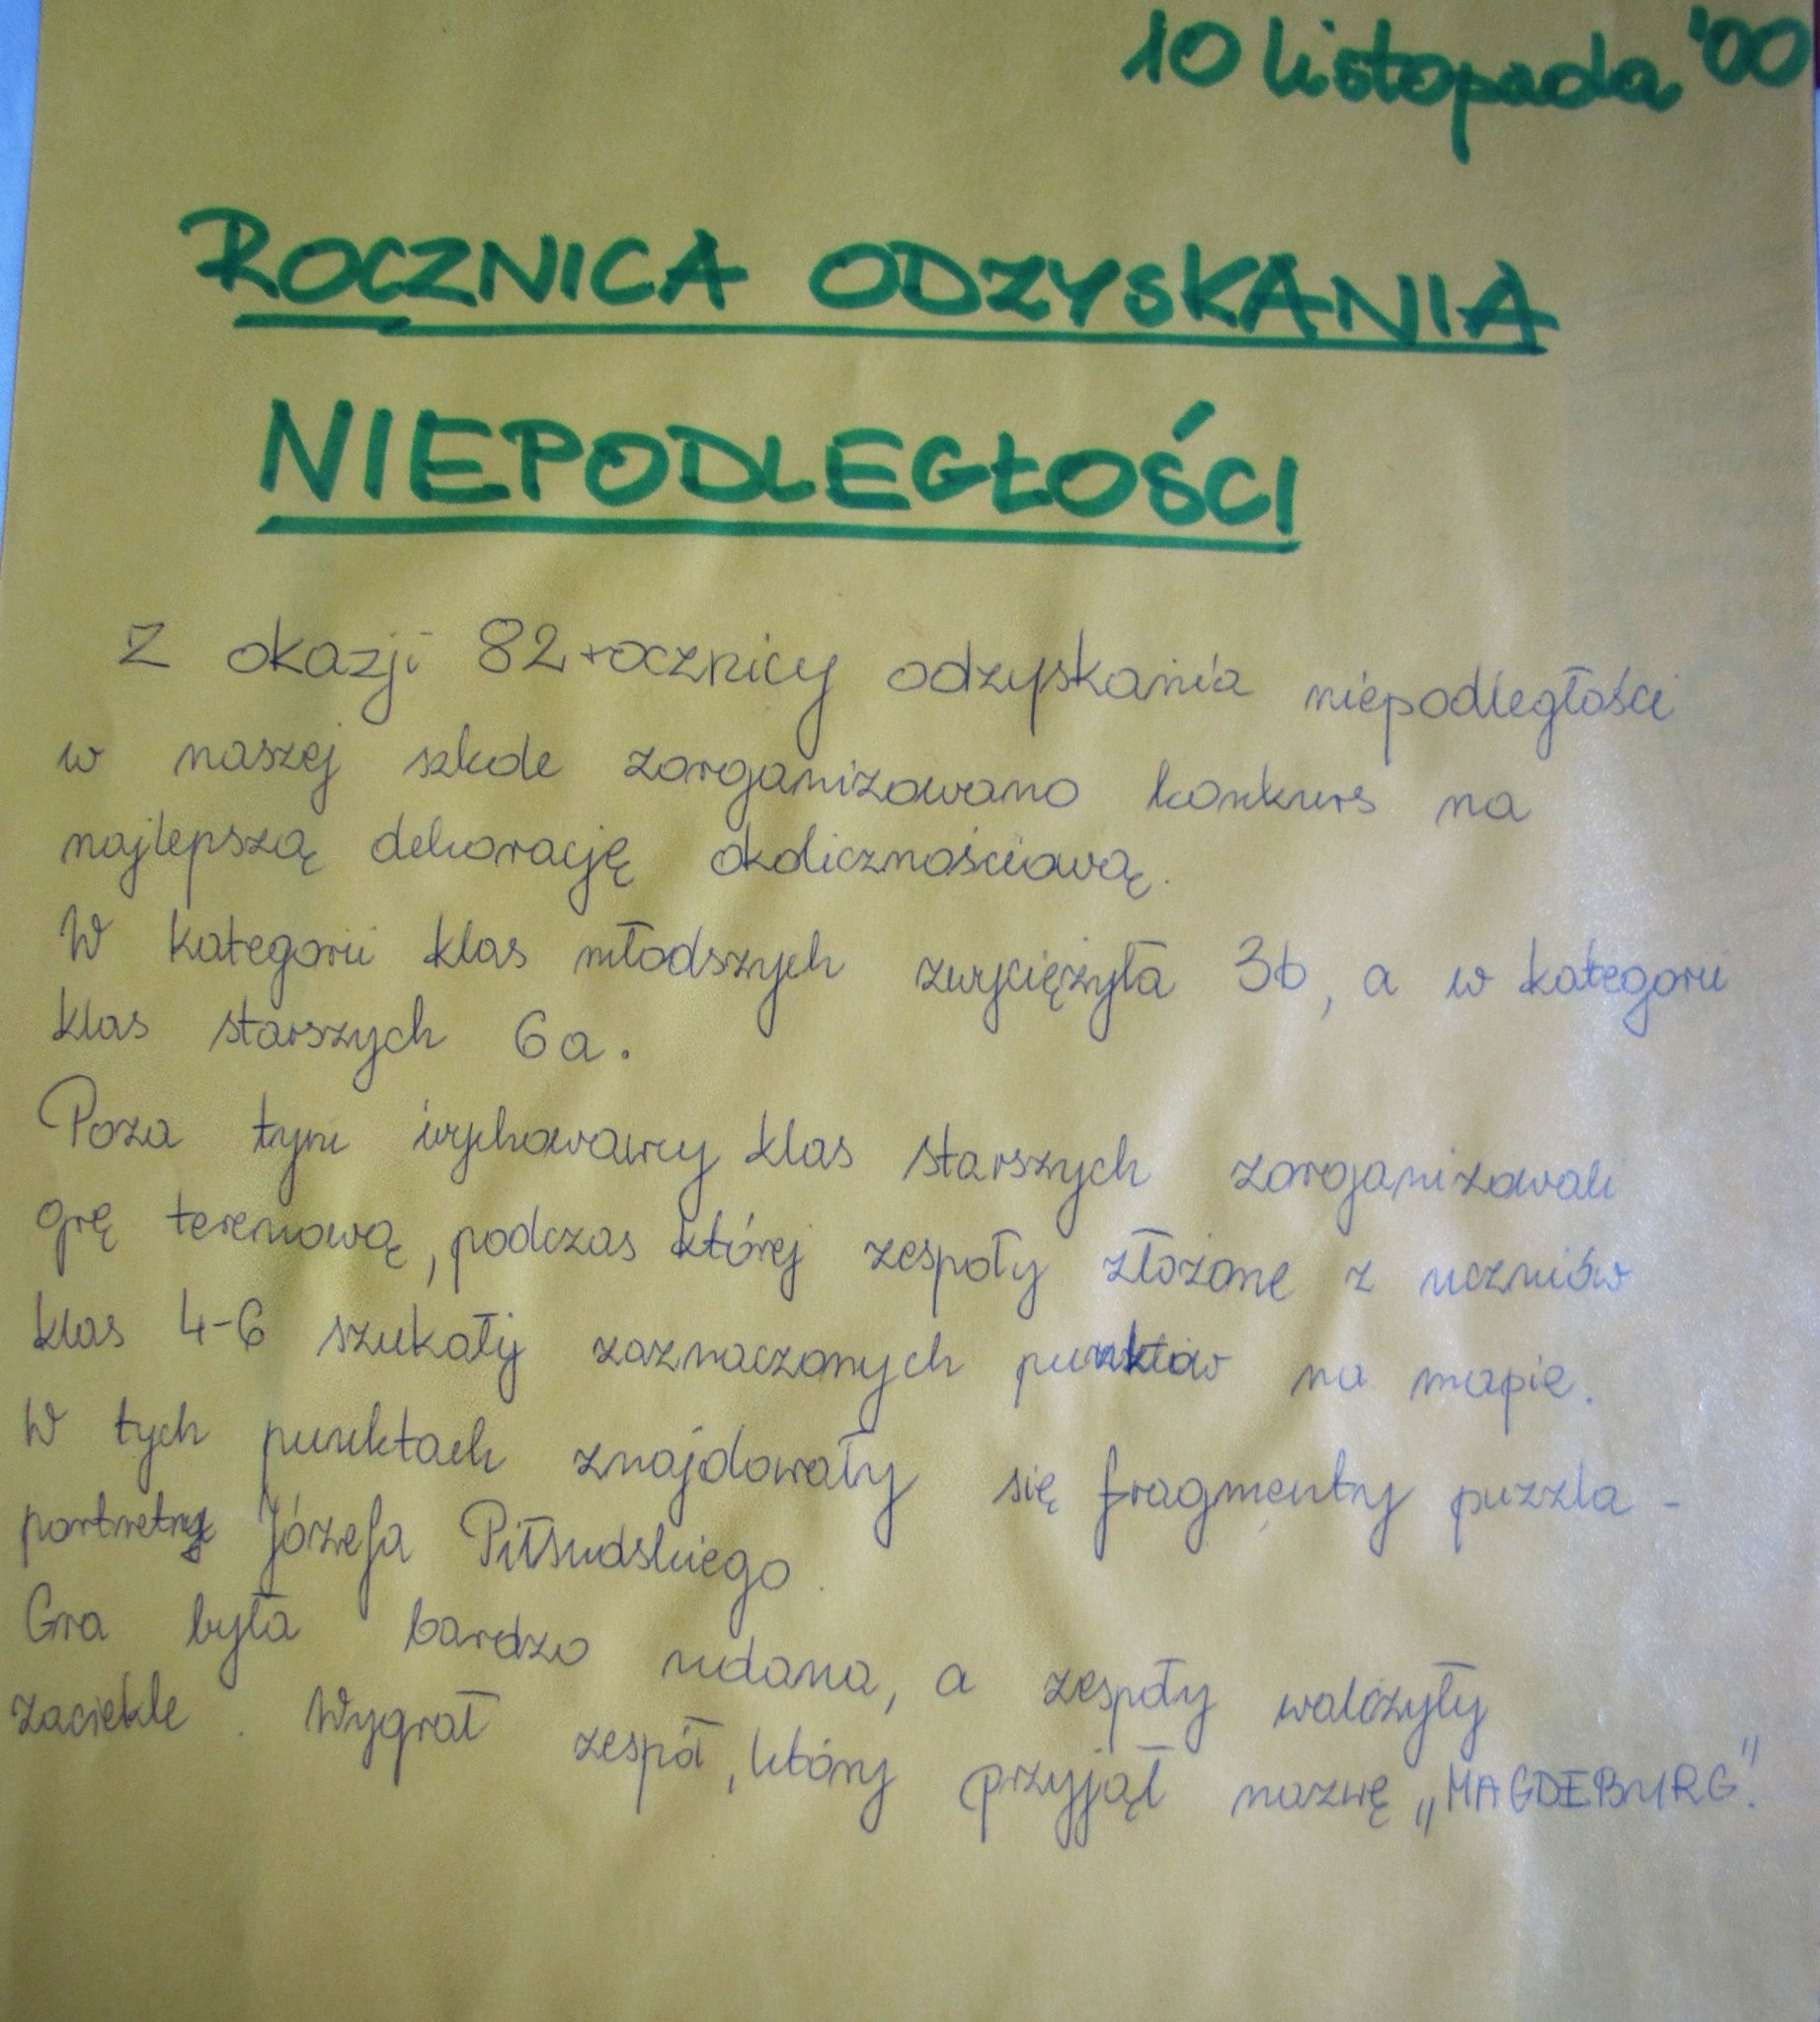 10 listopada '00
ROCZNICA ODZYSKANIA
NIEPODLEGŁOŚCI
Z okazji 82 rocznicy odzyskania niepodległości
w naszej szkole zorganizowano konkurs na
najlepszą dekorację okolicznościową.
W kategorii klas młodszych zwyciężyła 3b, a w kategorii
klas starszych 6a.
Poza tym wychowawcy klas starszych zorganizowali
grę terenową, podczas której zespoły złożone z uczniów
klas 4-6 szukały zaznaczonych punktów na mapie.
W tych punktach znajdowały się fragmenty puzzla -
portrety Józefa Piłsudskiego.
Gra była bardzo udana, a zespoły walczyły
zaciekle. Wygrał zespół, który przyjął nazwę „MAGDEBURG".